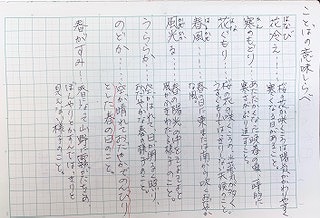 ことばの意味しらべ
花冷え……桜の花が咲くころは陽気がかわりやすく
寒くなる日があること。
寒のもどり…あたたかくなった春の
寒さがぶり返すこと。
花ぐもり…桜の花が咲くころの、
春風……春の日に東または南から吹くおだやか
な風。
風光る……春の陽光の中をそよ
うららか……空がはれて、日が明るく照り、
のどか……空が晴れておだやかでのんびり
とした春の日のこと。
春がすみ…春になって山野に霧がたちこめ
ぼんやりとかすんではっきりと
見えない様子のこと。